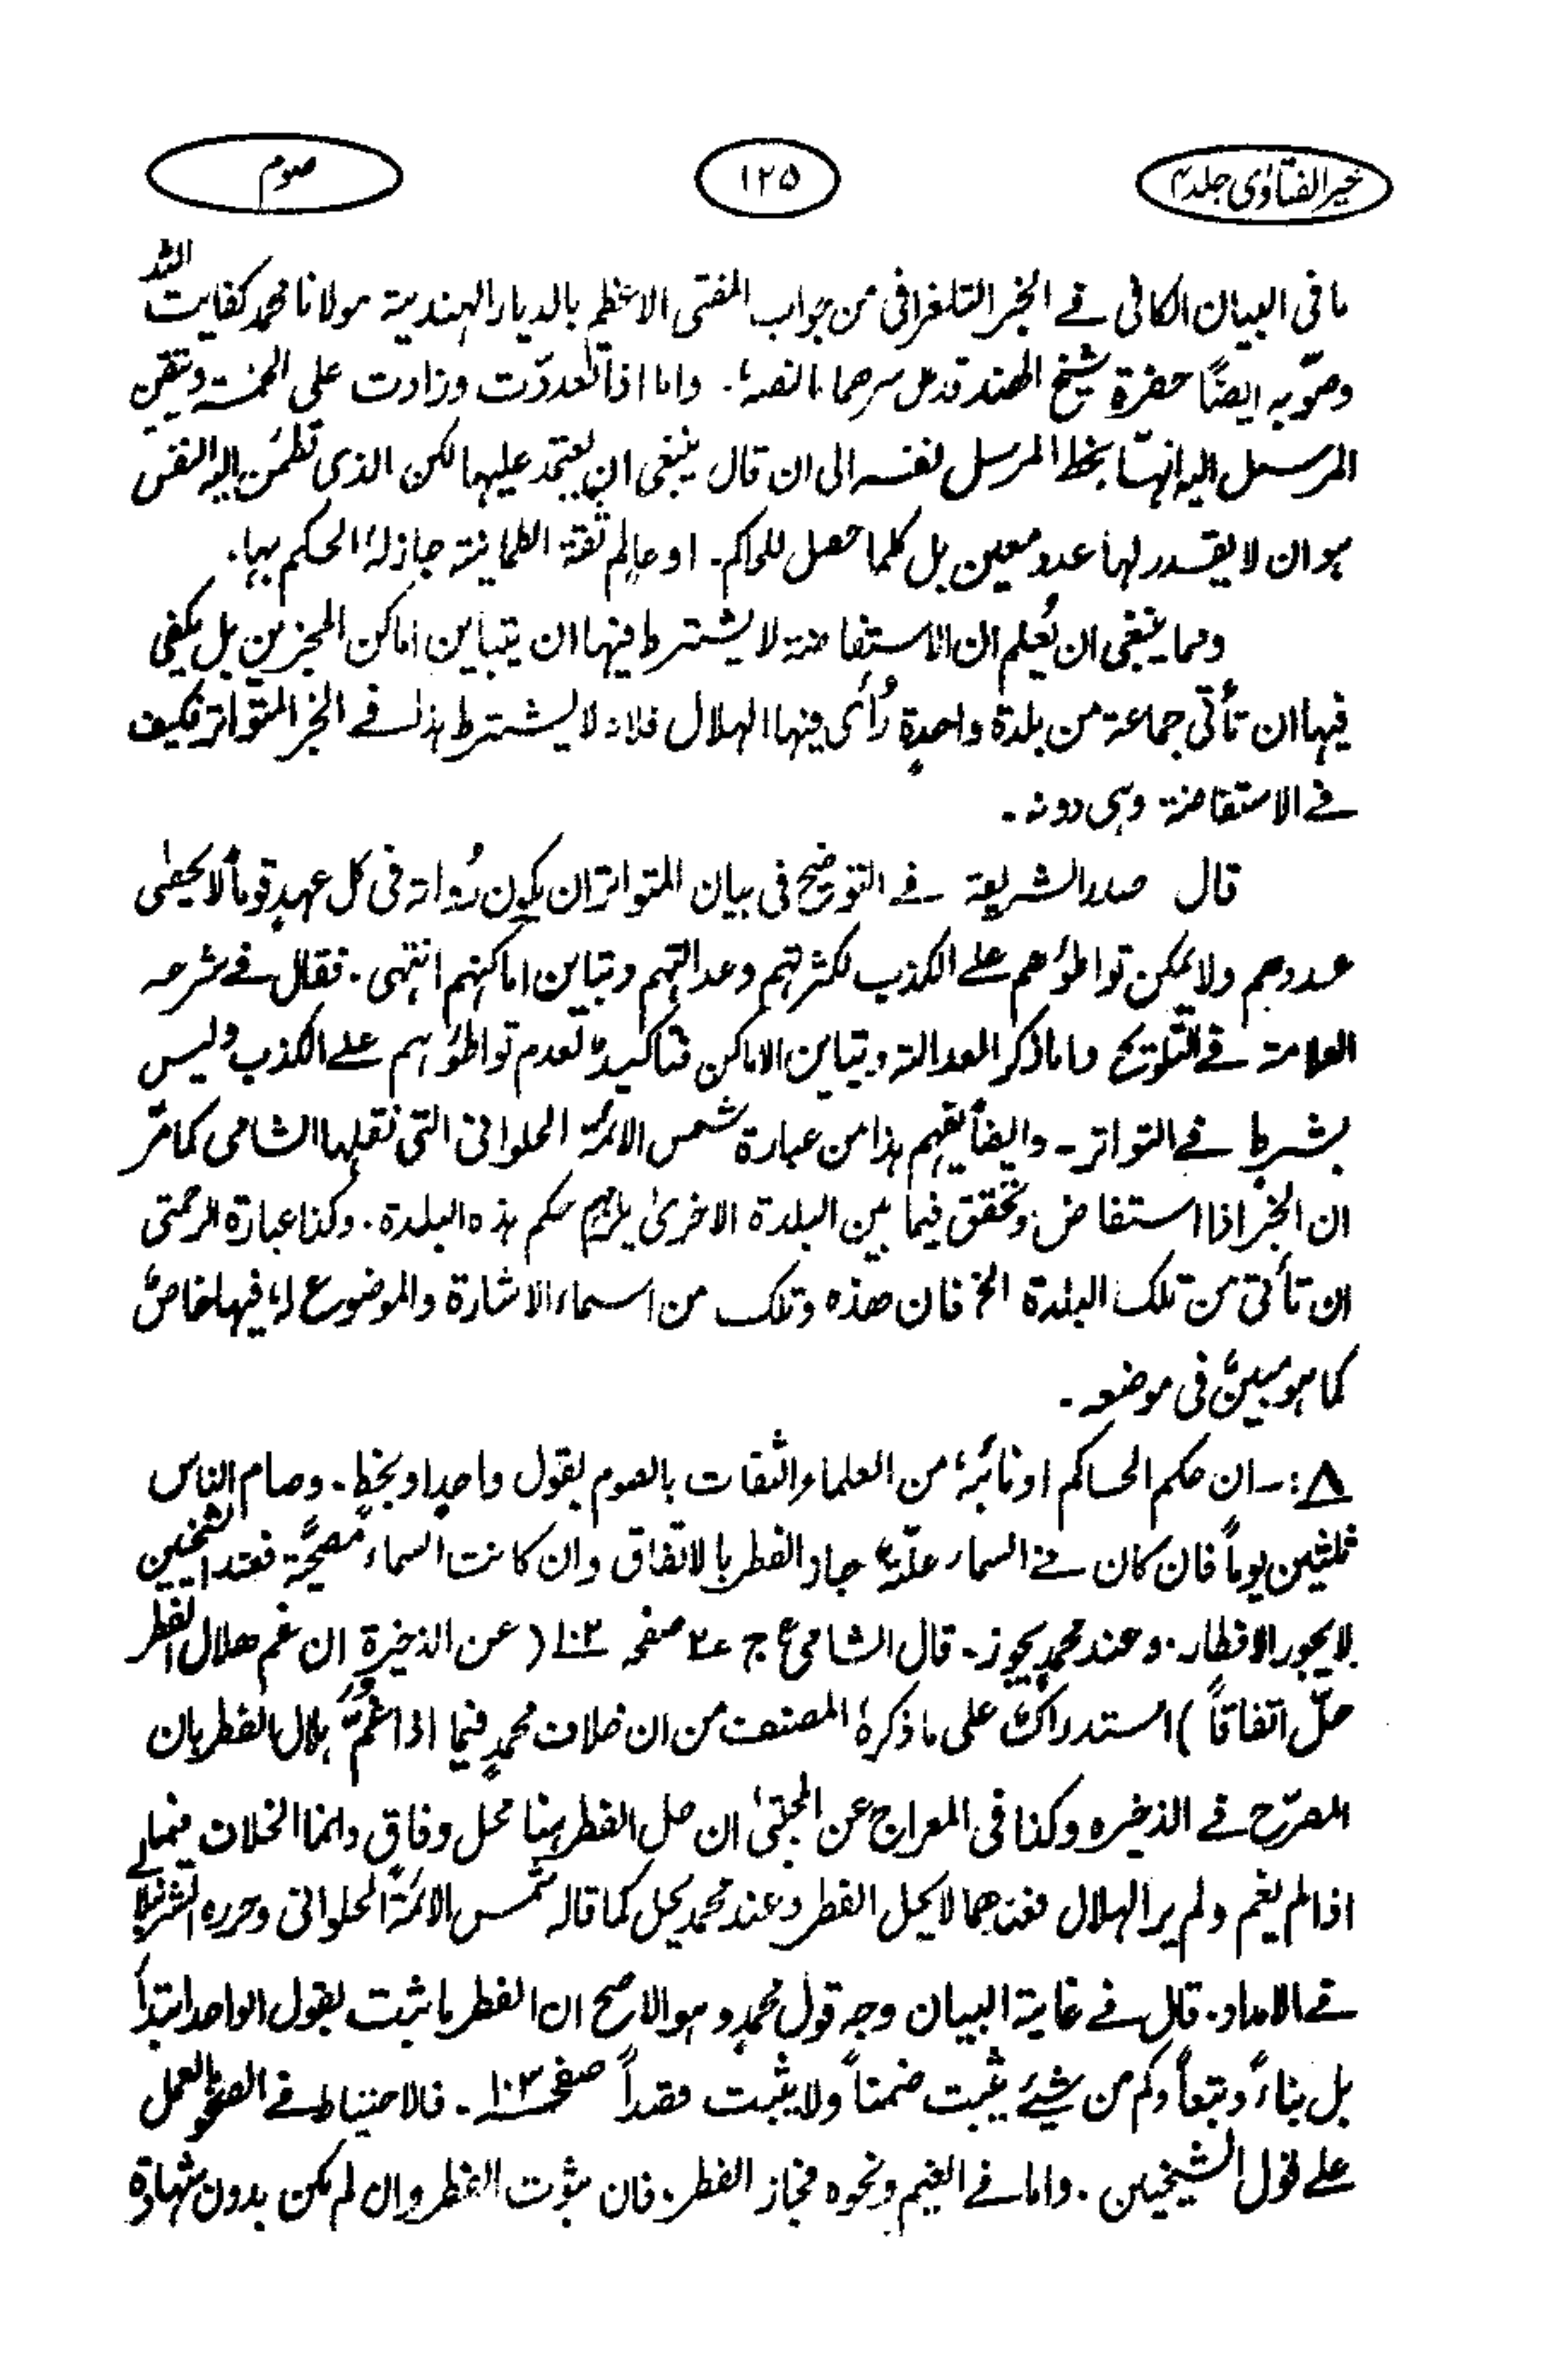 خیر الفتاوٰی جلد ۴
۱۲۵
صوم
ما فی البیان الکافی فے الخبر التلغرافی من جواب المفتی الاعظم بالدیار الہندیۃ مولانا محمد کفایت اللہ
وصوّبہ ایضًا حضرۃ شیخ الھند قدس سرھما، ما نصہٗ۔ واما اذا تعددّت وزادت علی الخمسۃ وتیقن
المرسل الیہ انہا بخط المرسل نفسہ الی ان قال ینبغی ان یعتمد علیہا لکن الذی تطمئن الیہ النفس
ہو ان لا یقدر لہا عدد معین بل کلما حصل للحاکم۔ او عالِم ثقۃ الطمانیۃ جاز لہٗ الحکم بہا۔
ومما ینبغی ان یُعلم ان الاستفاضۃ لا یشترط فیہا ان یتباین اماکن المخبرین بل یکفی
فیہا ان تأتی جماعۃ من بلدۃ واحدۃٍ رُأیَ فیہا الہلال فلانہ لا یشترط ہذا فے الخبر المتواتر فکیف
فے الاستفاضۃ وہی دونہ۔
قال صدر الشریعۃ فے التوضیح فی بیان المتواتر ان یکون رُواتہ فی کل عہدٍ قوماً لا یحصٰی
عددہم ولا یمکن تواطؤھم علے الکذب لکثرتہم وعدالتہم وتباین اماکنہم انتہی۔ فقال فے شرحہ
العلامۃ فے التلویح واما ذکر العدالۃ وتباین الاماکن فتاکیدٌ لعدم تواطؤہم علے الکذب ولیس
بشرط فے التواتر۔ وایضاً یفہم ہذا من عبارۃ شمس الائمۃ الحلوانی التی نقلہا الشامی کما مرّ
ان الخبر اذا استفاض وتحقق فیما بین البلدۃ الاخریٰ یلزمہم حکم ہذہ البلدۃ۔ وکذا عبارۃ الرحمتی
ان تأتی من تلک البلدۃ الخ فان ھذہ وتلک من اسماء الاشارۃ والموضوع لہٗ فیہا خاصٌ
کما ہو مبینٌ فی موضعہ۔
۸:۔ ان حکم الحاکم او نائبہٗ من العلماء الثقات بالصوم بقول واحدٍ او بخطٍ۔ وصام الناس
ثلثین یوماً فان کان فے السماء علّۃ جاز الفطر بالاتفاق وان کانت السماء مصحیّۃ فعند الشیخین
لا یجوز الافطار۔ وعند محمدٍ یجوز۔ قال الشامیؒ ج ۲ صفحہ ۱۰۳ (عن الذخیرۃ ان غم ھلال الفطر
حلّ اتفاقاً) استدراکٌ علی ما ذکرہٗ المصنف من ان خلاف محمدٍ فیما اذا غُمّ ہلال الفطر بان
المصرّح فے الذخیرہ وکذا فی المعراج عن المجتبیٰ ان حل الفطر ہنا محل وفاقٍ وانما الخلاف فیما
اذا لم یغم ولم یر الہلال فعندھما لا یحل الفطر وعند محمد یحل کما قالہ شمس الائمۃ الحلوانی وحررہ الشرنبلالی
فے الامداد۔ قال فے غایۃ البیان وجہ قول محمدٍ وہو الاصح ان الفطر ما ثبت بقول الواحد ابتداً
بل بناءً وتبعاً وکم من شیئٍ یثبت ضمناً ولا یثبت قصداً صفحہ ۱۰۳۔ فالاحتیاط فے الصحو العمل
علے قول الشیخین۔ واما فے الغیم ونحوہ فجاز الفطر۔ فان ثبوت الفطر وان لم یکن بدون شہادۃ